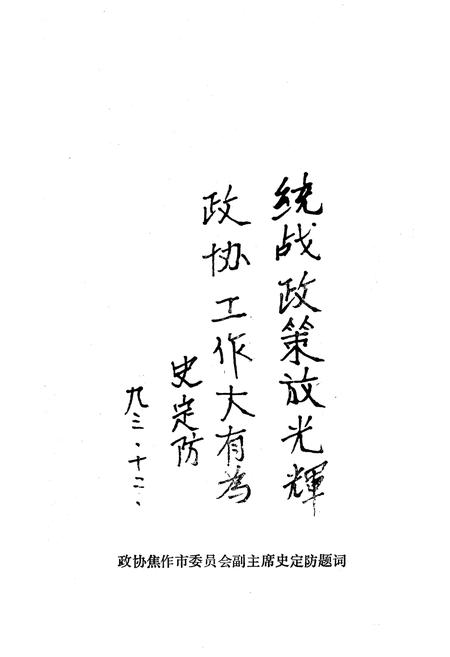 统战政策放光輝
政协工作大有為
史定防
九三·十二、
政协焦作市委员会副主席史定防题词